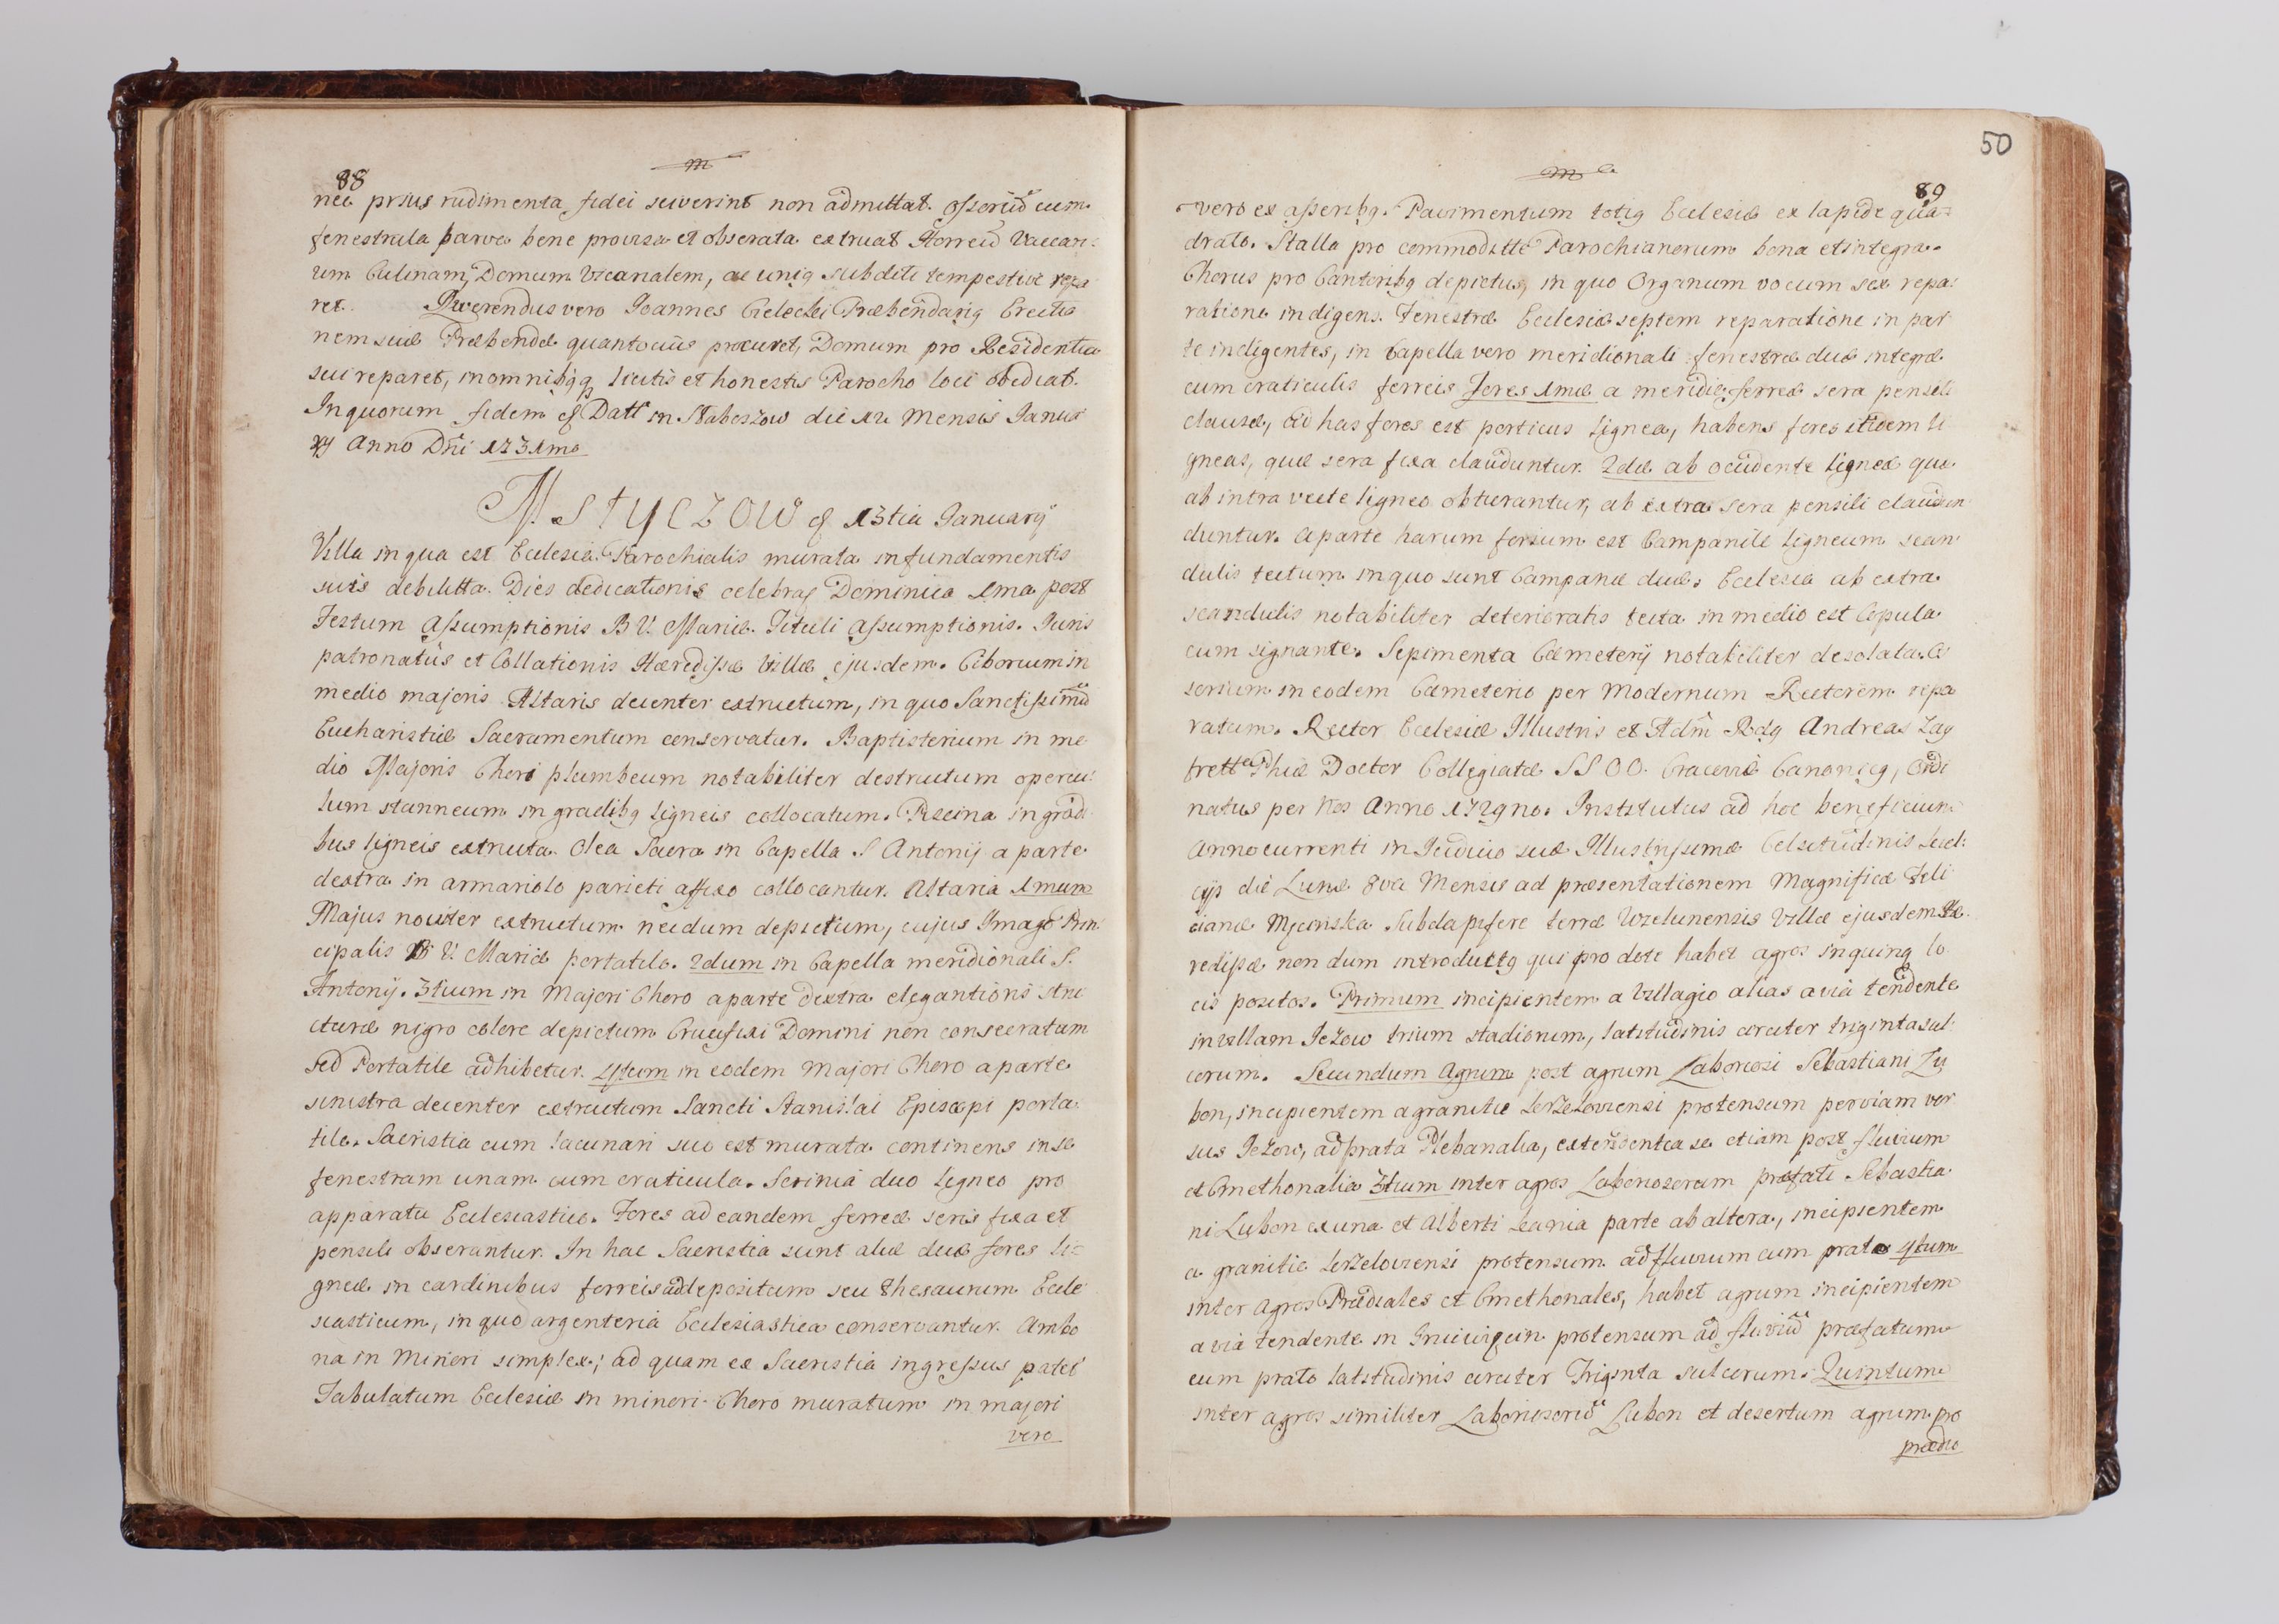 88
nec prius rudimenta fidei sciverint non admittat. Ossoriũ cum
fenestrula parva bene provisa et obserata extruat Horreũ Vaccari=
um Culinam, Domum Vicanalem, ac uniq subditi tempestive repa
ret. Rverendus vero Joannes Cielecki Præbendariq Erectio
nem suæ Præbendæ quantociùs procuret, Domum pro Residentia
sui reparet, in omnibqq licitis et honestis Parocho loci obediat.
In quorum fidem Datt in Staboszow die Mensis Janua
ry Anno Dñi 1731mo
MSTYCZOW 13tia Januarij
Villa in qua est Ecclesia Parochialis murata in fundamentis
suis debilitta. Dies dedicationis celebraŧ Dominica 1ma post
Festum Assumptionis B V. Mariæ. Tituli Assumptionis. Juris
patronatûs et Collationis Hæredissæ Villæ ejusdem. Ciborium in
medio majoris Altaris decenter extructum, in quo Sanctissimũ
Eucharistiæ Sacramentum conservatur. Baptisterium in me
dio Majoris Chori plumbeum notabiliter destructum opercu=
lum stanneum in gradibq ligneis collocatum. Piscina in gradi
bus ligneis extructa. Olea Sacra in Capella S Antonij a parte
dextra in armariolo parieti affixo collocantur. Altaria 1mum
Majus noviter extructum necdum depictum, cujus Imago Prin
cipalis B V. Mariæ portatile. 2dum in Capella meridionali S.
Antonij. 3tium in Majori Choro a parte dextra elegantioris stru
cturæ nigro colore depictum Crucifixi Domini non consecratum
sed Portatile adhibetur. 4tum in eodem Majori Choro a parte
sinistra decenter extructum Sancti Stanislai Episcopi porta
tile. Sacristia cum lacunari suo est murata continens in se
fenestram unam cum craticula. Scrinia duo lignea pro
apparatu Ecclesiastico. Fores ad eandem ferreæ seris fixa et
pensili obserantur. In hac Sacristia sunt aliæ duæ fores li=
gneæ in cardinibus ferreis ad depositum seu thesaurum Eccle
siasticum, in quo argenteria Ecclesiastica conservantur. Ambo
na in Minori simplex; ad quam ex Sacristia ingressus patet
Tabulatum Ecclesiæ in minori Choro muratum in majori
vero
50
89
vero ex asseribq. Pavimentum totiq Ecclesiæ ex lapide qua=
drato. Stalla pro commoditte Parochianorum bona et integra.
Chorus pro Cantoribq depictus, in quo Organum vocum sex repa=
ratione indigens. Fenestræ Ecclesiæ septem reparatione in par
te indigentes, in Capella vero meridionali fenestræ duæ integræ
cum craticulis ferreis fores 1mæ a meridie ferreæ sera pensili
clausæ, ad has fores est porticus lignea, habens fores itidem li
gneas, quæ sera fixa clauduntur. 2dæ ab occidente ligneæ quæ
ab intra vecte ligneo obturantur, ab extra sera pensili claudun
duntur. A parte harum forium est Campanile ligneum scan
dulis tectum in quo sunt Campanæ duæ. Ecclesia ab extra
scandulis notabiliter deterioratis tecta in medio est Copula
cum signante. Sepimenta Cæmeterij notabiliter desolata. Os
sorium in eodem Cæmeterio per Modernum Rectorem repa
ratum. Rector Ecclesiæ Illustris et Adm̃ Rdq Andreas Zag
frett Phiæ Doctor Collegiatæ SS OO. Cracoviæ Canonicq, Ordi
natus per Nos Anno 1729no. Institutus ad hoc beneficium
Anno currenti in Judicio suæ Illustrissimæ Celsitudinis
die Lunæ 8va Mensis ad præsentationem Magnificæ Feli
cianæ Męcinska Subdapifere terræ Wielunensis Villæ ejusdem Hæ
redissæ non dum introductq qui pro dote habet agros in quinq lo
cis positos. Primum incipientem a Villagio alias a via tendente
in villam Jezow trium stadiorum, latitudinis circiter triginta sul
corum. Secundum Agrum post agrum Laboriosi Sebastiani Lu
bon, incipientem a granitie protensum per viam ver
sus Jezow, ad prata Plebanalia, extendentia se etiam post fluvium
et Cmethonalia 3tium inter agros Laboriosorum præfati Sebastia
ni Lubon ex una et Alberti Kania parte ab altera, incipientem
a granitie protensum ad fluvium cum prato 4tum
inter agros Prædiales et Cmethonales, habet agrum incipientem
a via tendente in protensum ad fluviũ præfatum
cum prato latitudinis circiter Triginta sulcorum. Quintum
inter agros similiter Laboriosorũ Lubon et desertum agrum pro
prædio